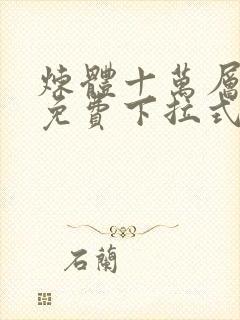 煉體十萬層
免費下拉式
石蘭